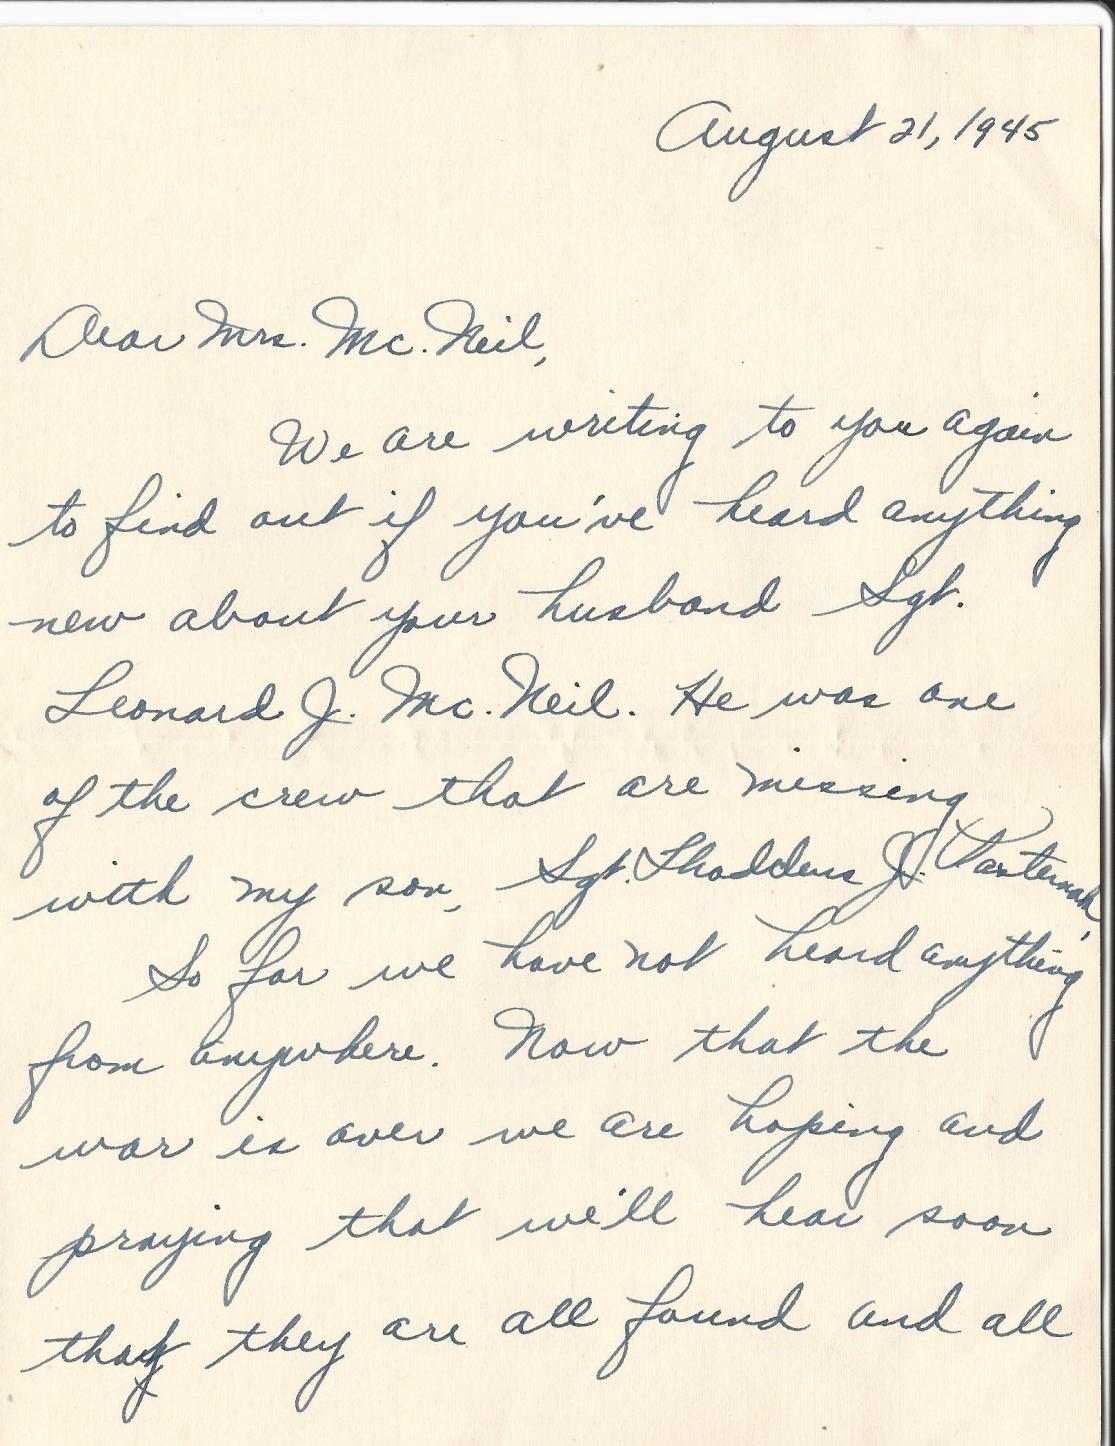 August 21, 1945
Dear Mrs. Mc. Neil,
We are writing to you again
to find out if you've heard anything
new about your husband Sgt.
Leonard J. Mc. Neil. He was one
of the crew that are missing
with my son, Sgt. Thaddeus J. Pasternak.
So far we have not heard anything
from anywhere. Now that the
war is over we are hoping and
praying that we'll hear soon
that they are all found and all